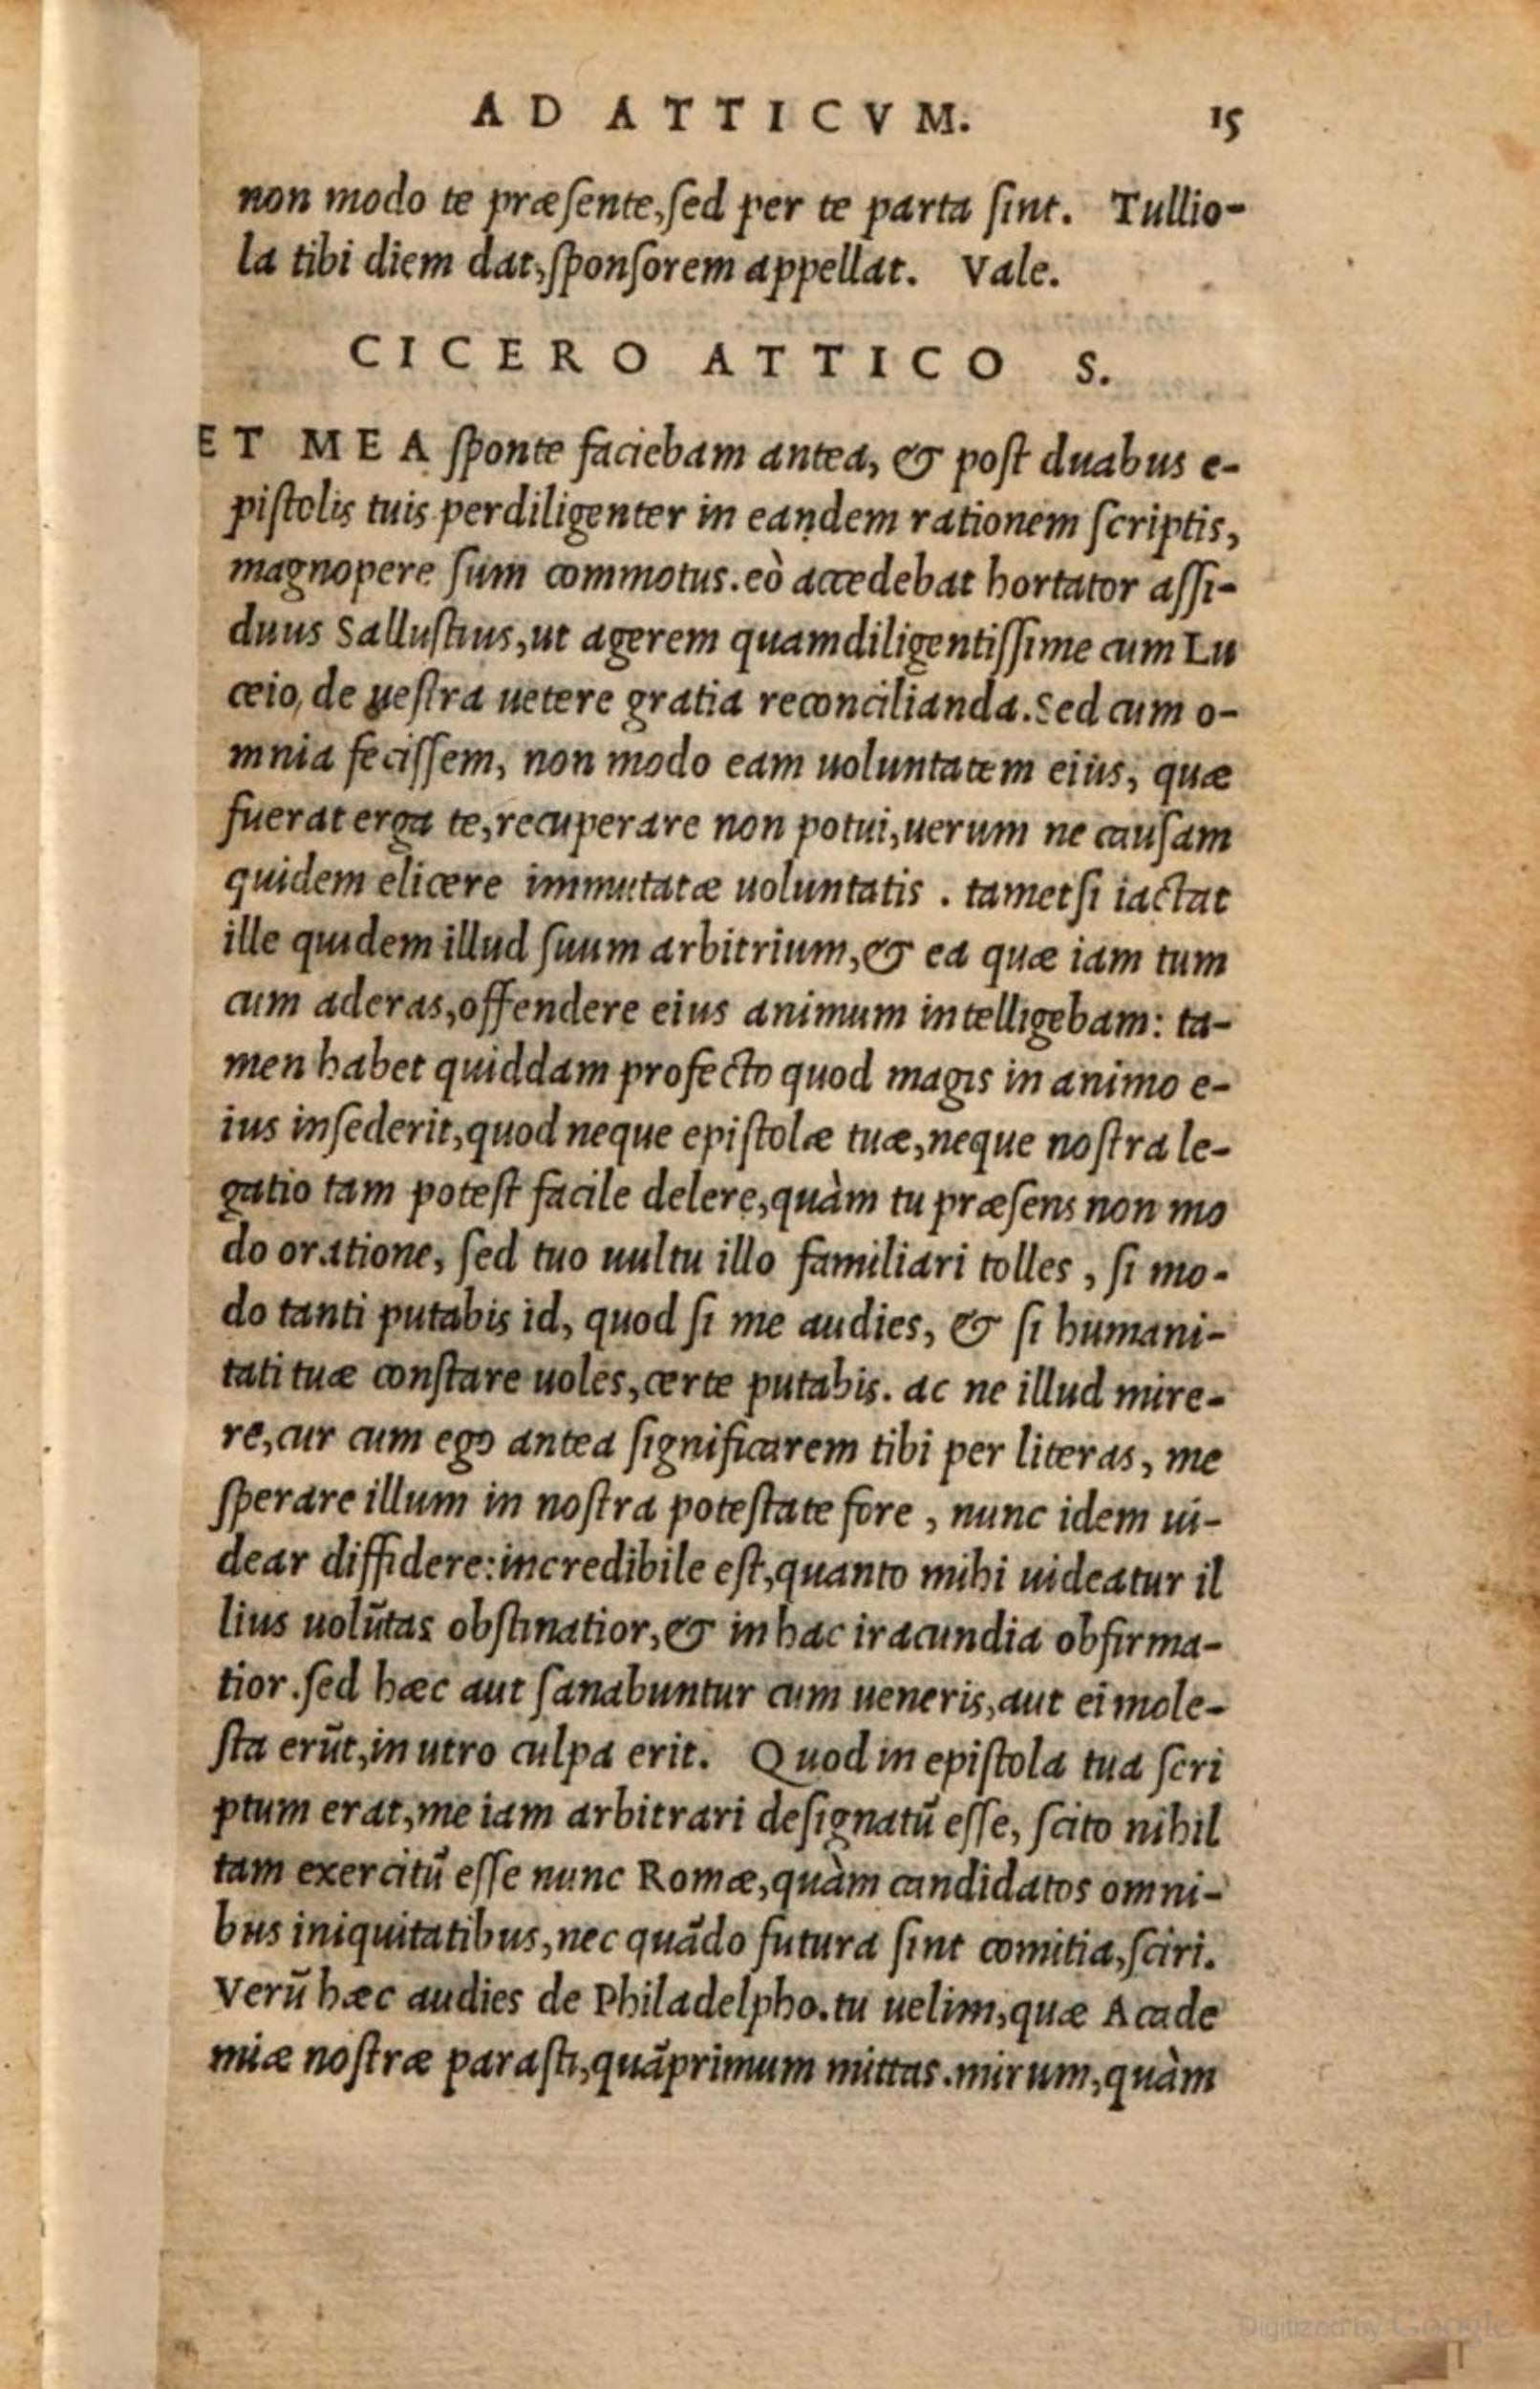 AD ATTICVM. 15
non modo te præsente, sed per te parta sint. Tullio-
la tibi diem dat, sponsorem appellat. Vale.
CICERO ATTICO S.
ET MEA sponte faciebam antea, & post duabus e-
pistolis tuis perdiligenter in eandem rationem scriptis,
magnopere sum commotus. eò accedebat hortator assi-
duus Sallustius, ut agerem quamdiligentissime cum Lu
ceio, de uestra uetere gratia reconcilianda. Sed cum o-
mnia fecissem, non modo eam uoluntatem eius, quæ
fuerat erga te, recuperare non potui, uerum ne causam
quidem elicere immutatæ uoluntatis . tametsi iactat
ille quidem illud suum arbitrium, & ea quæ iam tum
cum aderas, offendere eius animum intelligebam: ta-
men habet quiddam profecto quod magis in animo e-
ius insederit, quod neque epistolæ tuæ, neque nostra le-
gatio tam potest facile delere, quàm tu præsens non mo
do oratione, sed tuo uultu illo familiari tolles , si mo-
do tanti putabis id, quod si me audies, & si humani-
tati tuæ constare uoles, certe putabis. ac ne illud mire-
re, cur cum ego antea significarem tibi per literas, me
sperare illum in nostra potestate fore , nunc idem ui-
dear diffidere: incredibile est, quanto mihi uideatur il
lius uolũtas obstinatior, & in hac iracundia obfirma-
tior. sed hæc aut sanabuntur cum ueneris, aut ei mole-
sta erũt, in utro culpa erit. Quod in epistola tua scri
ptum erat, me iam arbitrari designatũ esse, scito nihil
tam exercitũ esse nunc Romæ, quàm candidatos omni-
bus iniquitatibus, nec quãdo futura sint comitia, sciri.
Verũ hæc audies de Philadelpho. tu uelim, quæ Acade
miæ nostræ parasti, quãprimum mittas. mirum, quàm
Digitized by Google